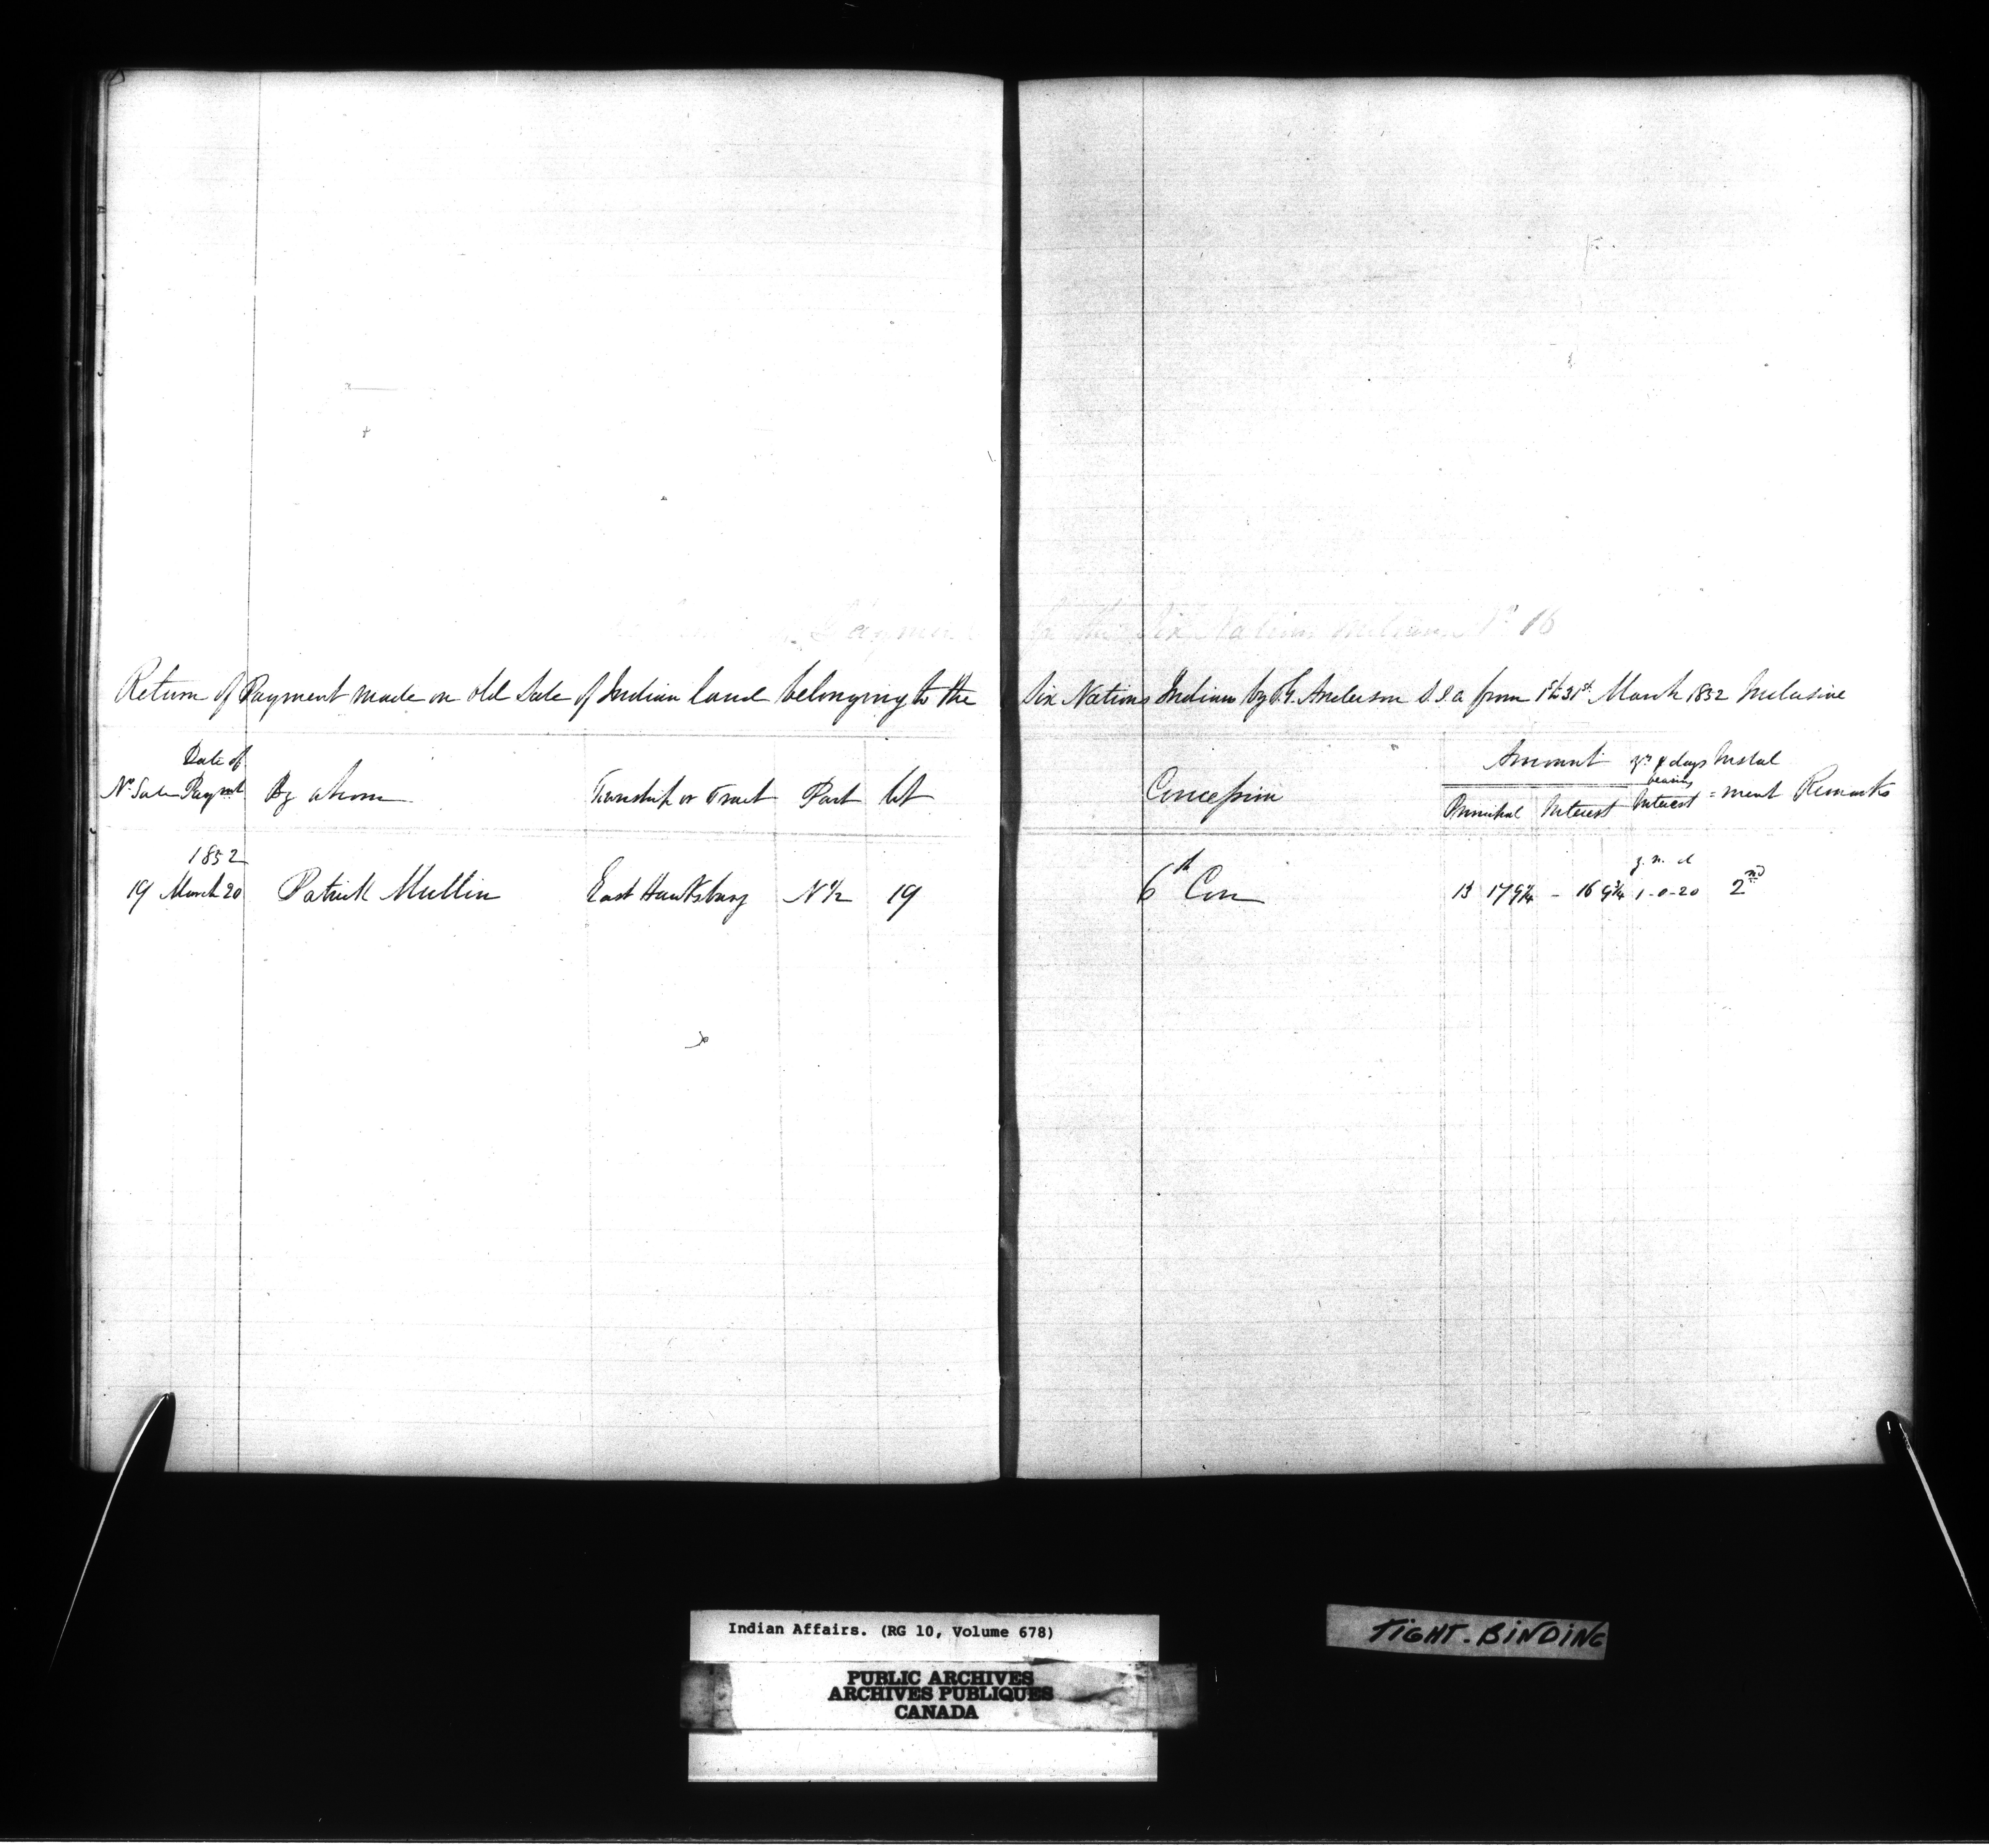 Payment to the Six Nations Indians No 16
Return of Payment made on old Sale of Indian land belonging to the Six Nations Indians by T.G. Anderson S.I.A from 1st to 31st March 1852 Inclusive
No Sale Date of Paymt By whom Township or Tract Part Lot Concession Amount Principal Interest yrs & days bearing Interest Instal=ment Remarks
1852 y. m. d
19 March 20 Patrick Mullin East Hawksbury N 1/2 19 6th Con 13 17 9¼ - 16 9¾ 1-0-20 2nd
Indian Affairs. (RG 10, Volume 678)
PUBLIC ARCHIVES
ARCHIVES PUBLIQUES
CANADA
TIGHT-BINDING